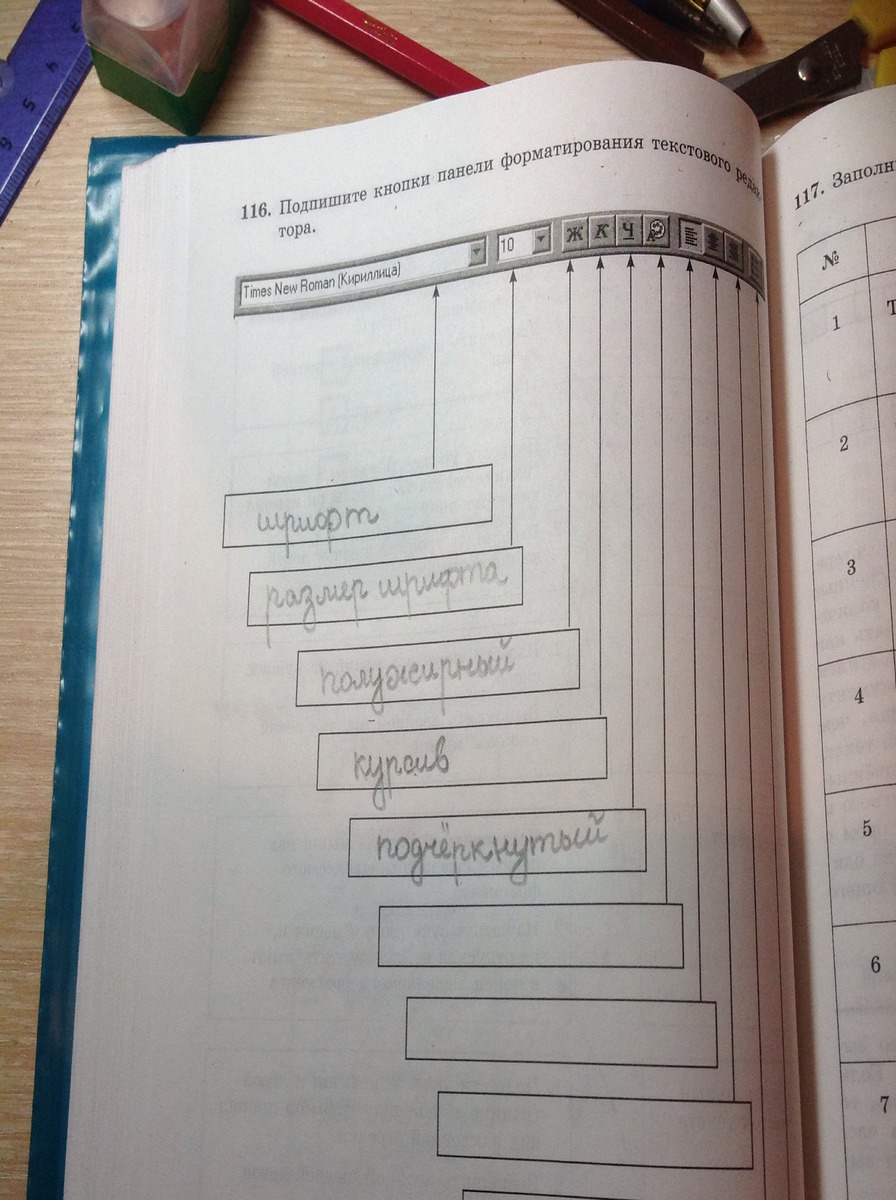 116. Подпишите кнопки панели форматирования текстового редак
тора.
Times New Roman (Кириллица)
10
Ж К Ч
шрифт
размер шрифта
полужирный
курсив
подчёркнутый
117. Заполн
№
1
Т
2
3
4
5
6
7
5
6